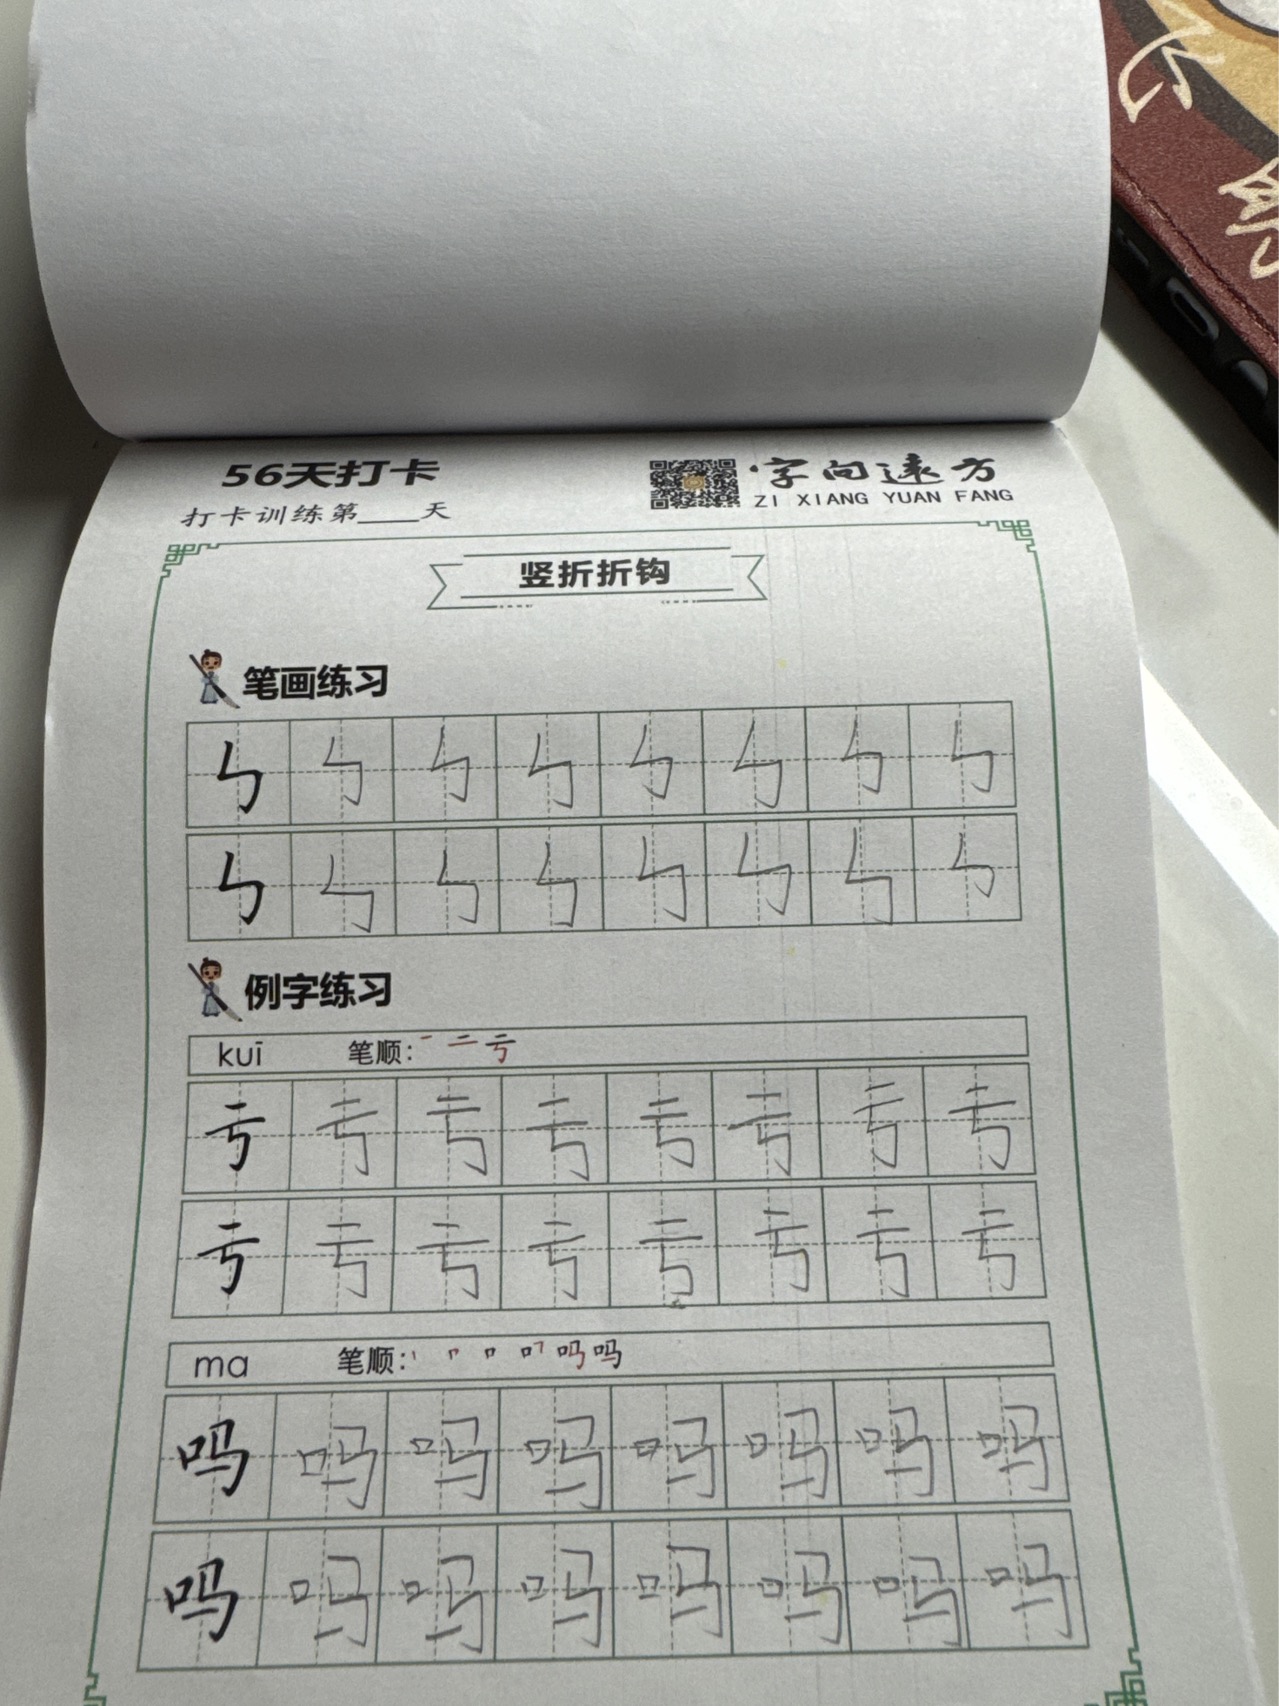 56天打卡
字向远方
打卡训练第____天
ZI XIANG YUAN FANG
竖折折钩
笔画练习
ㄣ ㄣ ㄣ ㄣ ㄣ ㄣ ㄣ ㄣ
ㄣ ㄣ ㄣ ㄣ ㄣ ㄣ ㄣ ㄣ
例字练习
kuī 笔顺: 一 二 亏
亏 亏 亏 亏 亏 亏 亏 亏
亏 亏 亏 亏 亏 亏 亏 亏
ma 笔顺: 丨 𠃍 口 吗 吗
吗 吗 吗 吗 吗 吗 吗 吗
吗 吗 吗 吗 吗 吗 吗 吗